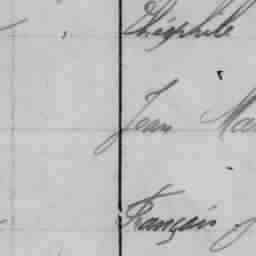 Théophile
Jean Ma
François J